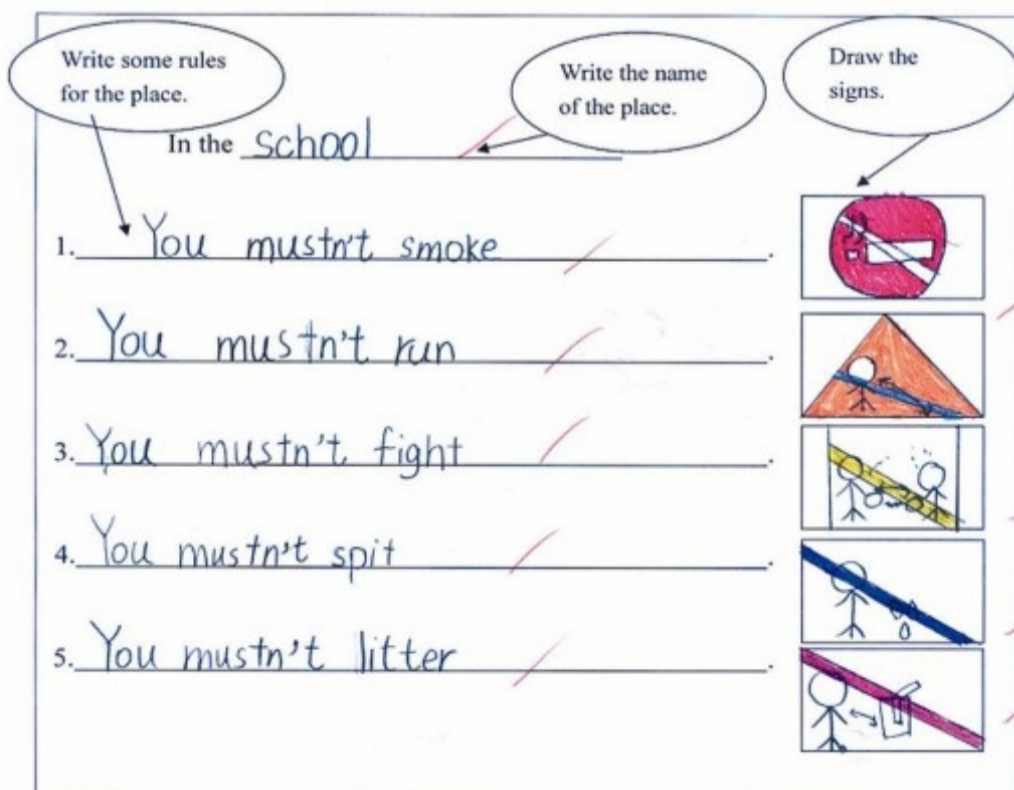 Write some rules
for the place.
Write the name
of the place.
Draw the
signs.
In the school
1. You mustn't smoke.
2. You mustn't run.
3. You mustn't fight.
4. You mustn't spit.
5. You mustn't litter.